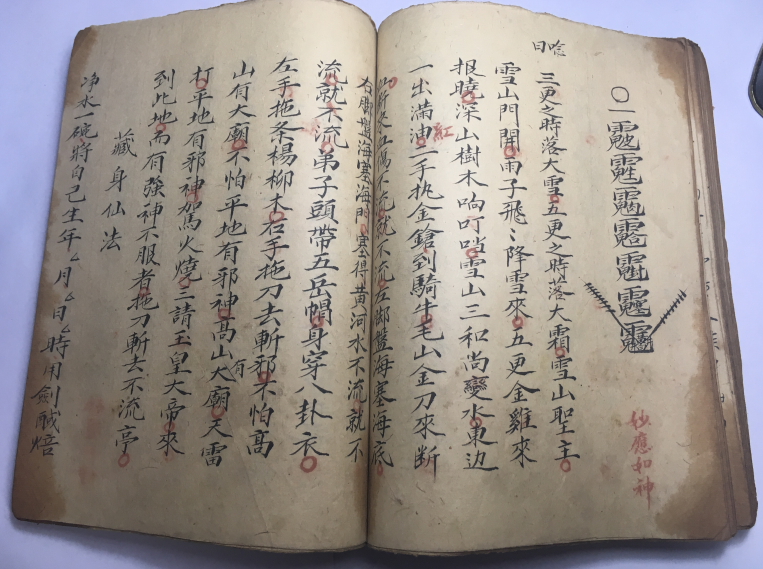 唸曰
三更之時落大雪五更之時落大霜雪山聖主
雪山門開雨子飛〻降雪來五更金雞來
报曉深山樹木响叮噹雪山三和尚變水東边
一出滿油二手执金鎗到騎牛毛山金刀來断
紅
不流就不流左脚盤海塞海底
右脚盤海塞海門塞得黄河水不流就不
流就不流弟子頭帶五岳帽身穿八卦衣
左手拖条楊柳木右手拖刀去斬邪不怕高
山有大廟不怕平地有邪神高山有大廟天雷
打平地有邪神駕火燒三請玉皇大帝來
到此地而有强神不服者拖刀斬去不流亭
藏身仙法
净水一碗將自己生年月日時用劍
妙應和神